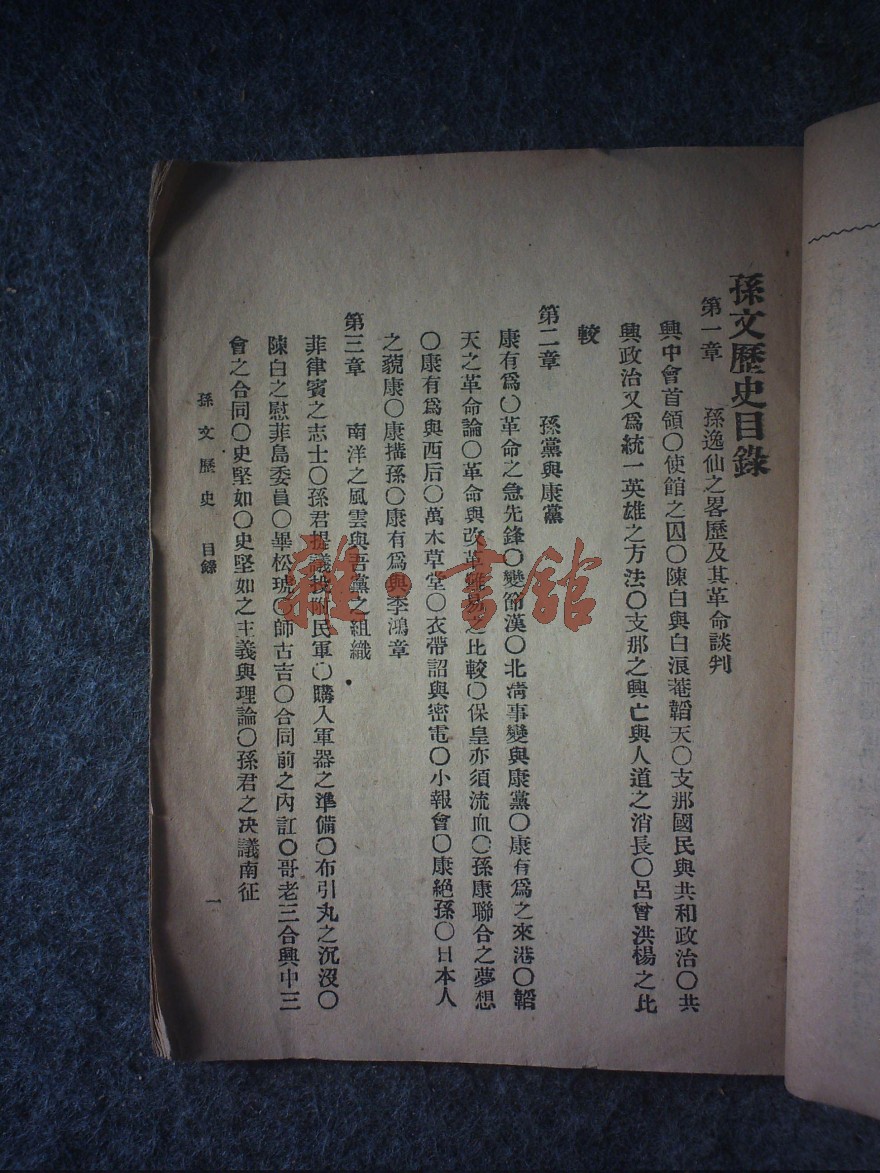 孫文歷史目錄
第一章　孫逸仙之畧歷及其革命談判
興中會首領〇使館之囚〇陳白與白浪菴韜天〇支那國民與共和政治〇共
興政治又爲統一英雄之方法〇支那之興亡與人道之消長〇呂曾洪楊之比
較
第二章　孫黨與康黨
康有爲〇革命之急先鋒〇變節漢〇北清事變與康黨〇康有爲之來港〇韜
天之革命論〇革命與改革難易之比較〇保皇亦須流血〇孫康聯合之夢想
〇康有爲與西后〇萬木草堂〇衣帶詔與密電〇小報會〇康絕孫〇日本人
之藐康〇康擠孫〇康有爲與李鴻章
第三章　南洋之風雲與吾黨之組織
菲律賓之志士〇孫君提議投附民軍〇購入軍器之準備〇布引丸之沉沒〇
陳白之慰菲島委員〇畢松琥〇師古吉〇合同前之內訌〇哥老三合興中三
會之合同〇史堅如〇史堅如之主義與理論〇孫君之決議南征
孫文歷史　目錄
一
雜·書舘